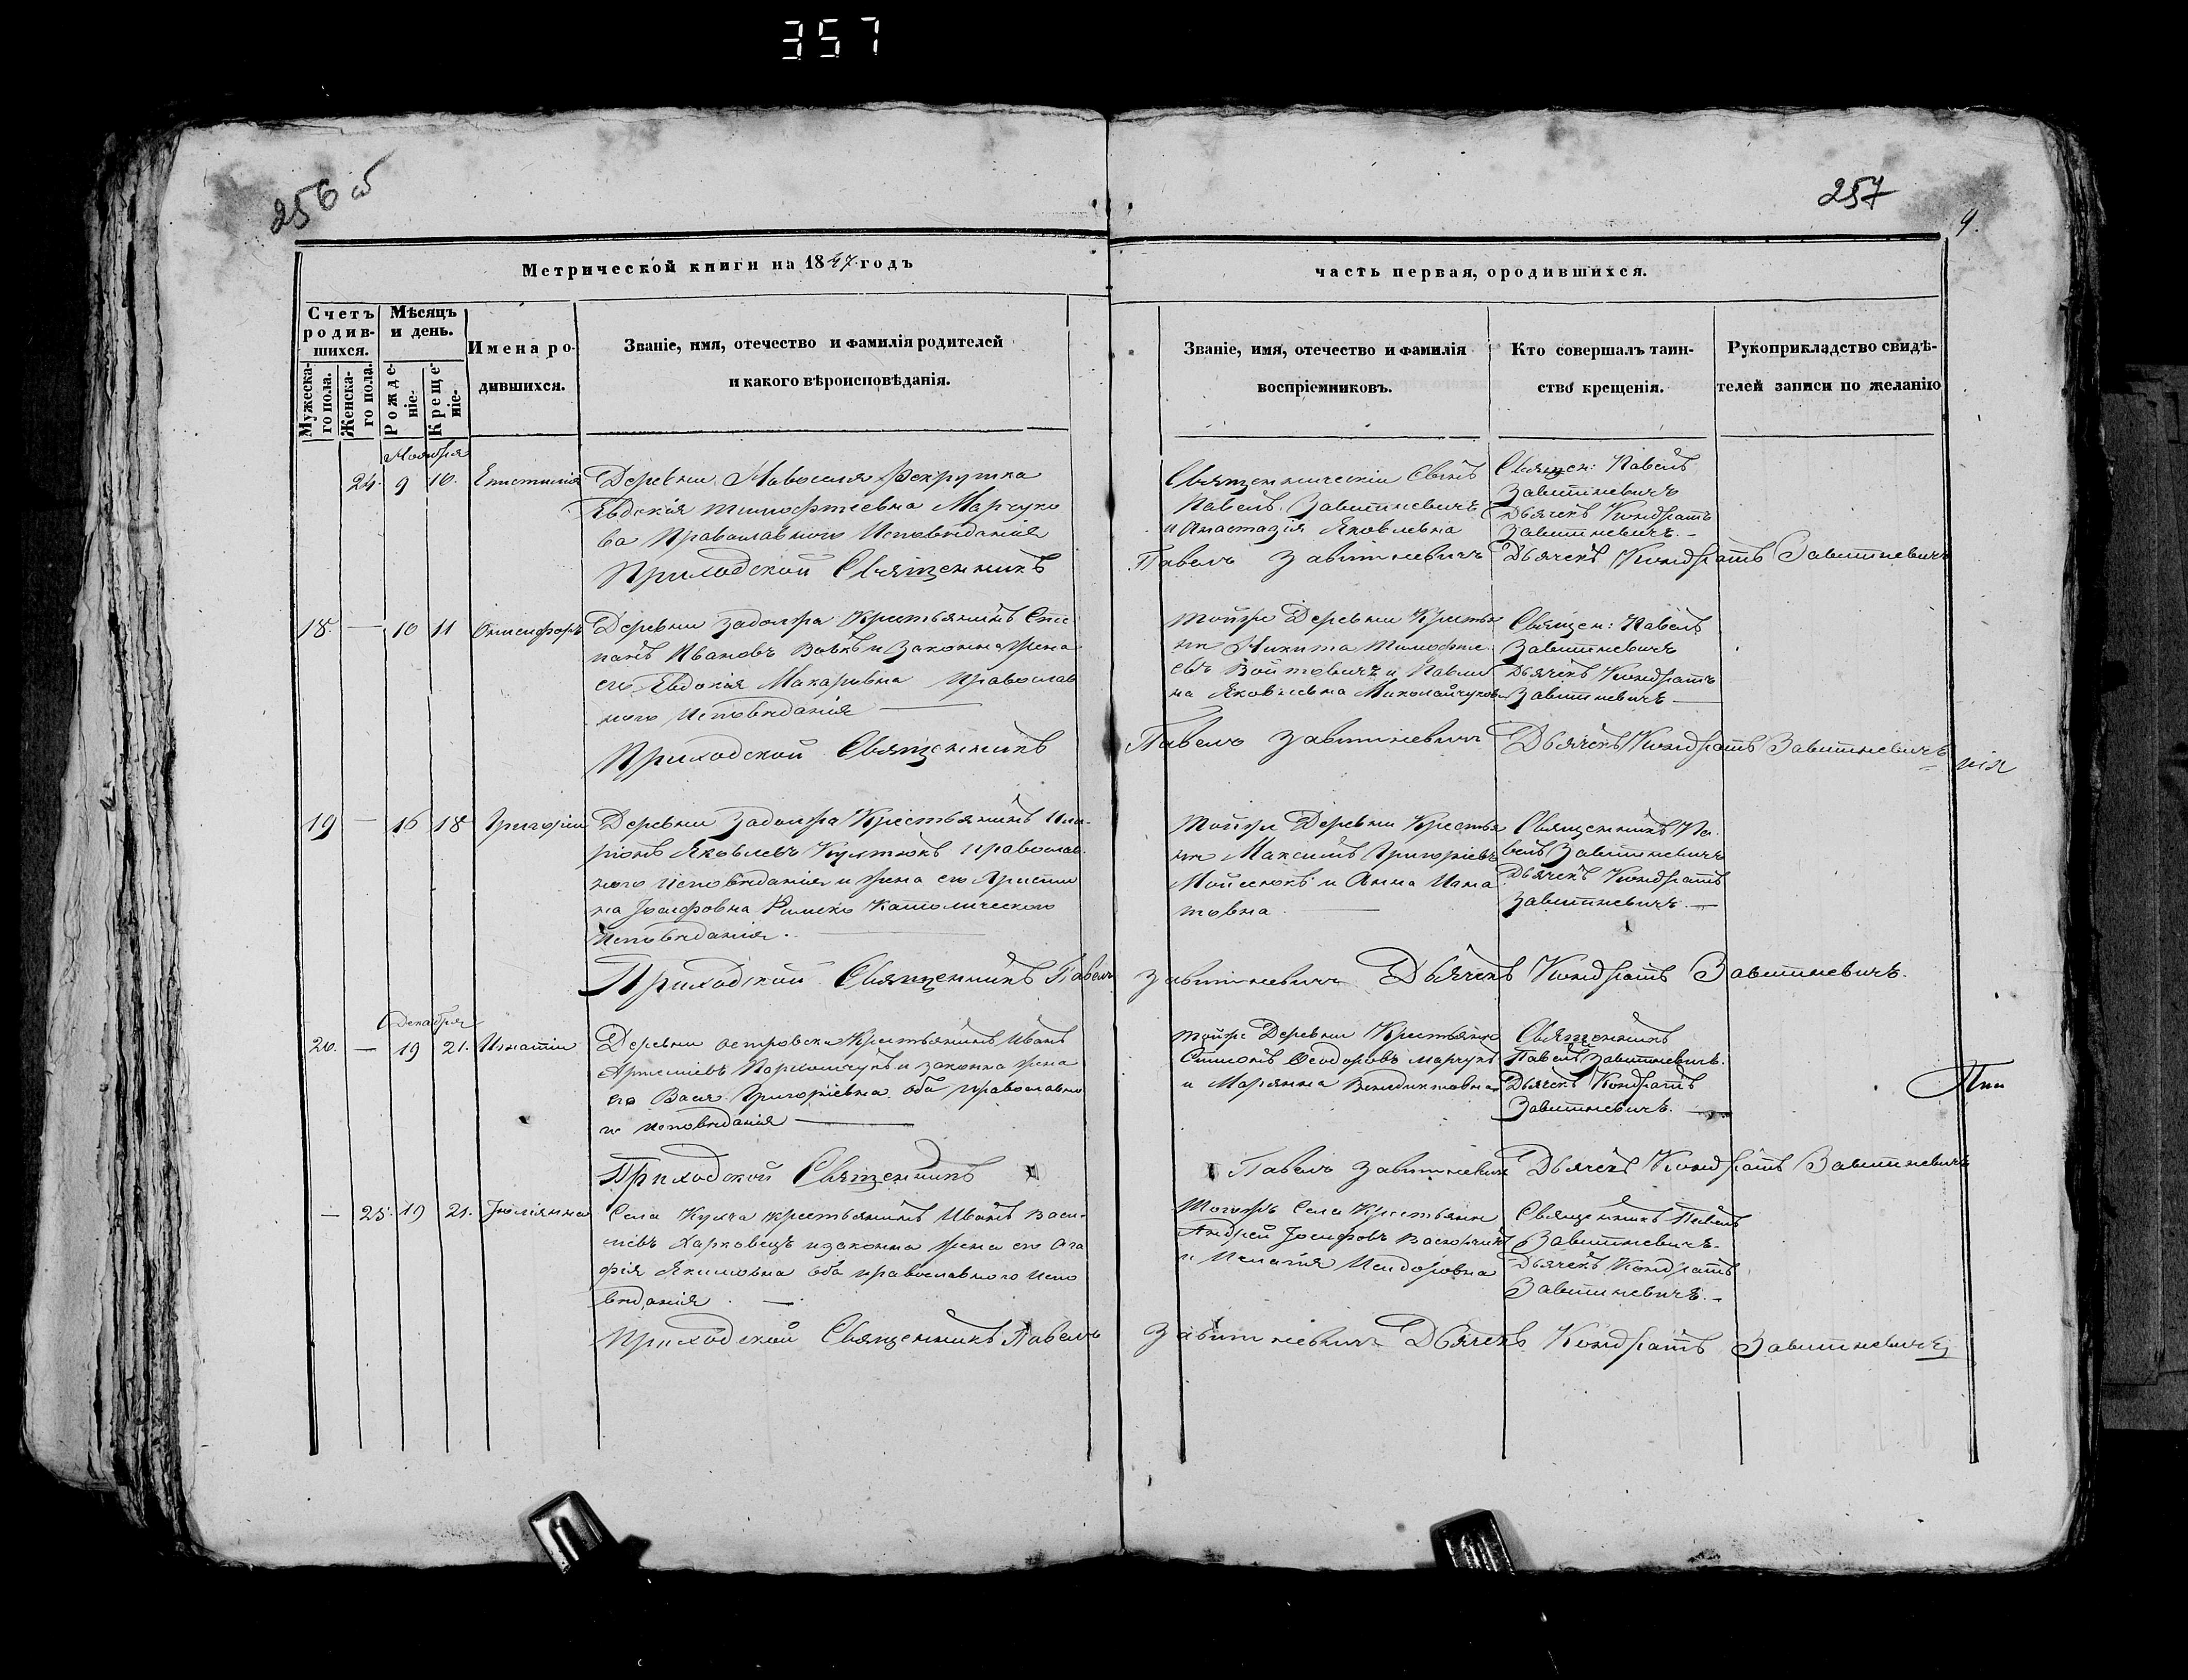 357
256 об
257
9.
Метрической книги на 1847 годъ
часть первая, ородившихся.
Счетъ родив-
шихся.
Мѣсяцъ
и день.
Мужеска-
го пола.
Женска-
го пола.
Рожде-
ніе.
Креще-
ніе.
Имена ро-
дившихся.
Званіе, имя, отечество и фамилія родителей
и какого вѣроисповѣданія.
Званіе, имя, отечество и фамилія
воспріемниковъ.
Кто совершалъ таин-
ство крещенія.
Рукоприкладство свидѣ-
телей записи по желанію
Ноября
24. 9 10.
Деревни
Тимофтеевна Марчуко
ва Православного Исповѣданія
Священническій Сынъ
Павелъ Завитневичъ
и Анастазія Яковлевна
Священ: Павелъ
Завитневичъ
Дьячекъ Кондратъ
Завитневичъ. -
Приходской Священникъ
Павелъ Завитневичъ Дьячекъ Кондратъ Завитневичъ
18. — 10 11 Онисифоръ
Деревни Задолжа Крестьянинъ Сте
панъ Ивановъ Вовкъ и Законна жена
его Евдокія Макаровна Православ
ного Исповѣданія —
Тойже Деревни Крестья
не Никита Тимофее
евъ Войтовичъ и Павли
на Яковлевна Миколайчукова
Священ: Павелъ
Завитневичъ
Дьячекъ Кондратъ
Завитневичъ —
Приходской Священникъ
Павелъ Завитневичъ Дьячекъ Кондратъ Завитневичъ
нія
19 — 16 18 Григорій
Деревни Задолжа Крестьянинъ Ила-
ріонъ Яковлевъ православ.
ного исповѣданія и жена его
на Іосифовна Римско Католического
Исповѣданія. —
Тойже Деревни Крестья
не Максимъ Григоріевъ
Мойсеюкъ и Анна Игна
товна. —
Священникъ Па-
велъ Завитневичъ
Дьячекъ Кондратъ
Завитневичъ. —
Приходской Священникъ Павелъ
Завитневичъ Дьячекъ Кондратъ Завитневичъ.
Декабря
20. — 19 21. Игнатій
Деревни Островска Крестьянинъ Иванъ
Артемиевъ и законна жена
его Васса Григоріевна оба православно
го исповѣданія —
Тойже Деревни Крестьяне
Симіонъ Феодоровъ Марчукъ
и Марянна Венедиктовна
Священникъ
Павелъ Завитневичъ.
Дьячекъ Кондратъ
Завитневичъ. —
Приходской Священникъ
Павелъ Завитневичъ Дьячекъ Кондратъ Завитневичъ
— 25. 19 21. Іюліянна
Села Кухча крестьянинъ Иванъ Васи-
лиевъ Харковецъ изаконна жена его Ага
фія Якимовна оба православного испо
вѣданія. —
Тогожъ Села Крестьяни
Андрей Іосифовъ
и Пелагія Исидоровна
Священникъ Павелъ
Завитневичъ.
Дьячекъ Кондратъ
Завитневичъ. -
Приходской Священникъ Павелъ
Завитневичъ Дьячекъ Кондратъ Завитневичъ